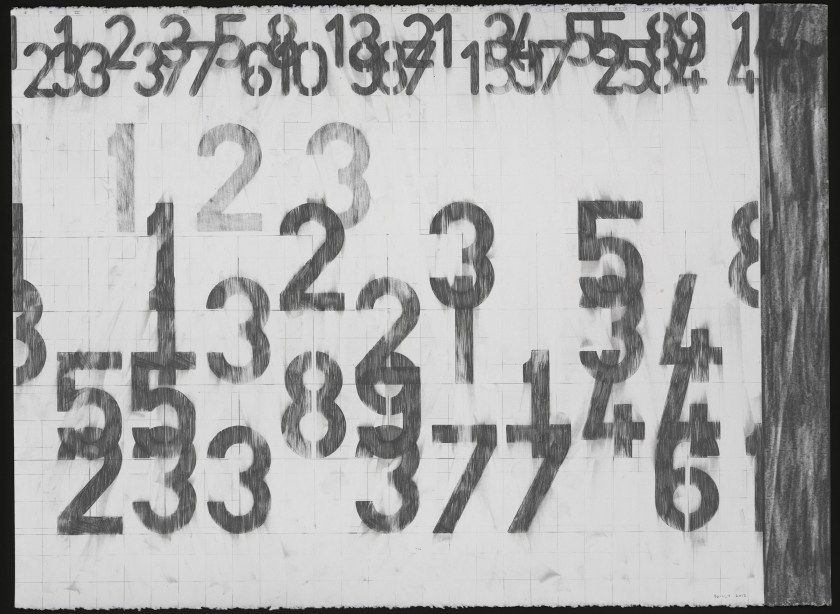 1 2 3 5 8 13 21 34 55 89 14
233 377 610 987 1597 2584 4
1 2 3
1 2 3 5 8
3 13 21 34
55 89 144
233 377 6